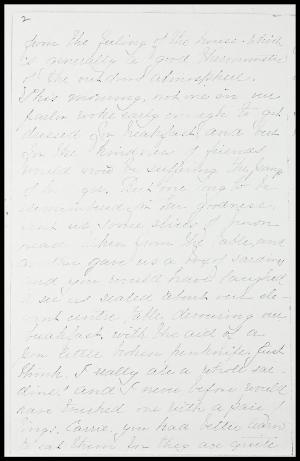 2
from the feeling of the house. Which
is generally a good thermometer
of the outdoor atmosphere.
This morning, not one in our
parlor woke early enough to get
dressed for breakfast, and but
for the kindness of friends
would now be suffering the pangs
of hunger. But one long to be
remembered, in her goodness,
sent us some slices of brown
bread taken from the table, and
another gave us a box of sardines
and you would have laughed
to see us seated about our ele-
gant centre table, devouring our
breakfast, with the aid of a
little broken penknife. Just
think, I really ate a whole sar-
dine! and I never before would
have touched one with a pair
tongs. Carrie, you had better learn
to eat them for they are quite